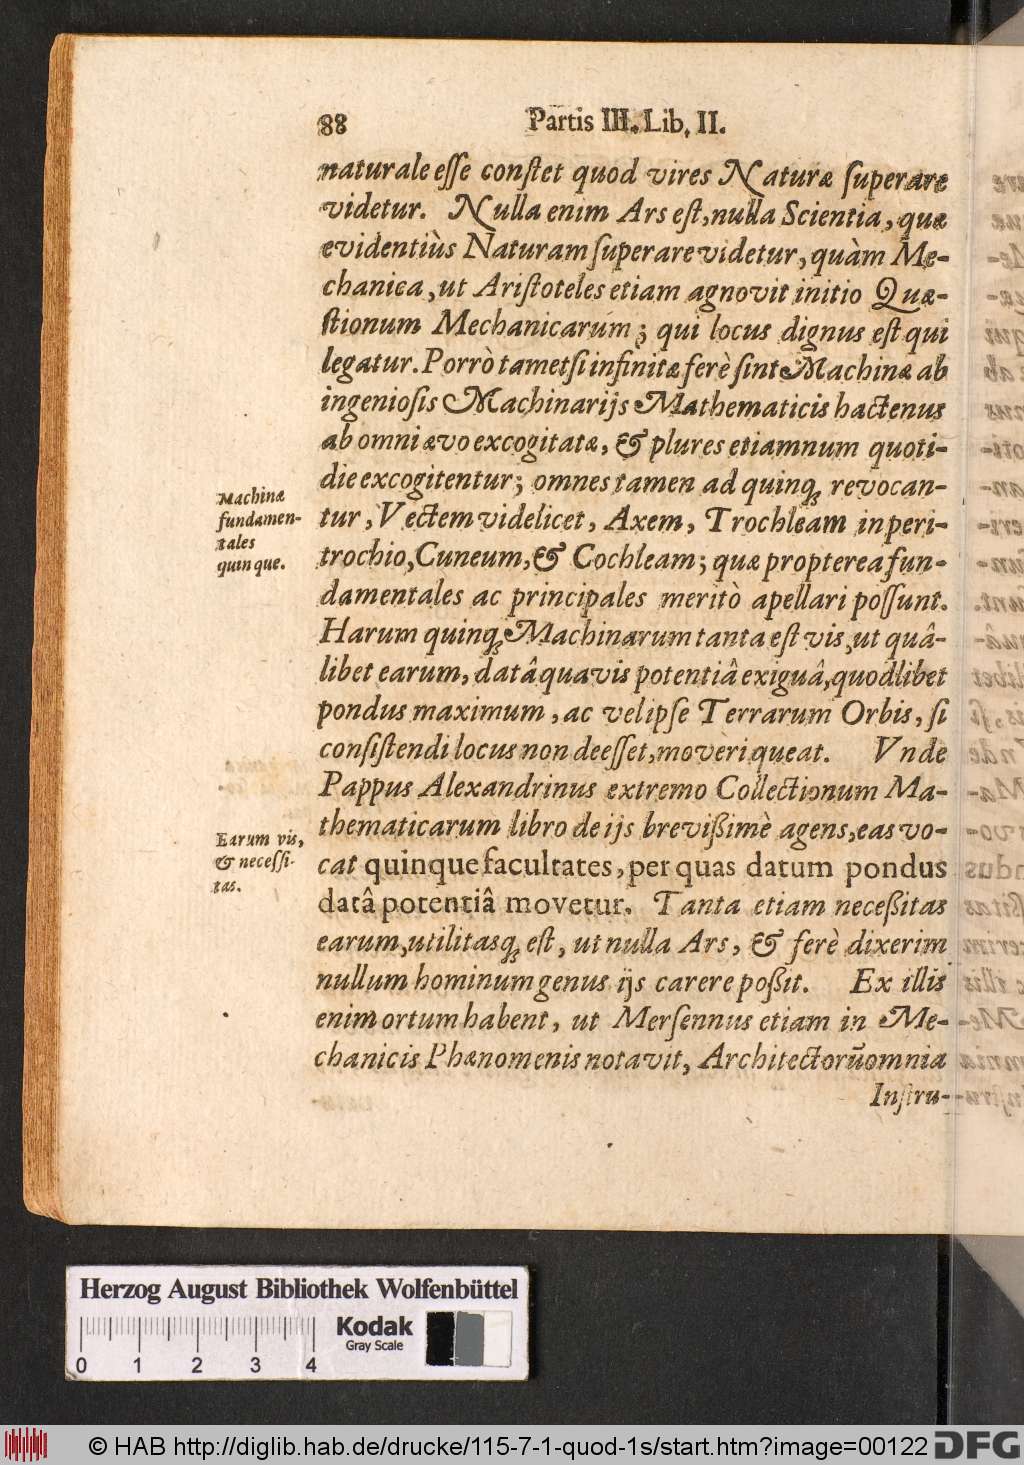 88 Partis III. Lib. II.
naturale esse constet quod vires Naturæ superare
videtur. Nulla enim Ars est, nulla Scientia, quæ
evidentiùs Naturam superare videtur, quàm Me-
chanica, ut Aristoteles etiam agnovit initio Quæ-
stionum Mechanicarum; qui locus dignus est qui
legatur. Porrò tametsi infinitæ ferè sint Machinæ ab
ingeniosis Machinarijs Mathematicis hactenus
ab omni ævo excogitatæ, & plures etiamnum quoti-
die excogitentur; omnes tamen ad quinq́; revocan-
tur, Vectem videlicet, Axem, Trochleam in peri-
trochio, Cuneum, & Cochleam; quæ propterea fun-
damentales ac principales meritò apellari possunt.
Harum quinq́; Machinarum tanta est vis, ut quâ-
libet earum, datâ quavis potentiâ exiguâ, quodlibet
pondus maximum, ac vel ipse Terrarum Orbis, si
consistendi locus non deesset, moveri queat. Vnde
Pappus Alexandrinus extremo Collectionum Ma-
thematicarum libro de ijs brevißimè agens, eas vo-
cat quinque facultates, per quas datum pondus
datâ potentiâ movetur. Tanta etiam neceßitas
earum, utilitasq́; est, ut nulla Ars, & ferè dixerim
nullum hominum genus ijs carere poßit. Ex illis
enim ortum habent, ut Mersennus etiam in Me-
chanicis Phænomenis notavit, Architectorū omnia
Instru-
Machinæ
fundamen-
tales
quinque.
Earum vis,
& necessi-
tas.
Herzog August Bibliothek Wolfenbüttel
Kodak
Gray Scale
0 1 2 3 4
© HAB http://diglib.hab.de/drucke/115-7-1-quod-1s/start.htm?image=00122 DFG